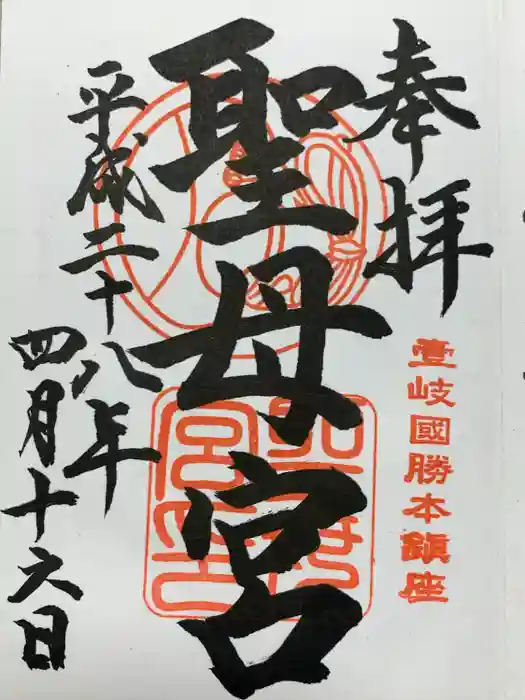 奉拝
壹岐國勝本鎮座
聖母宮
平成二十八年
四月十六日